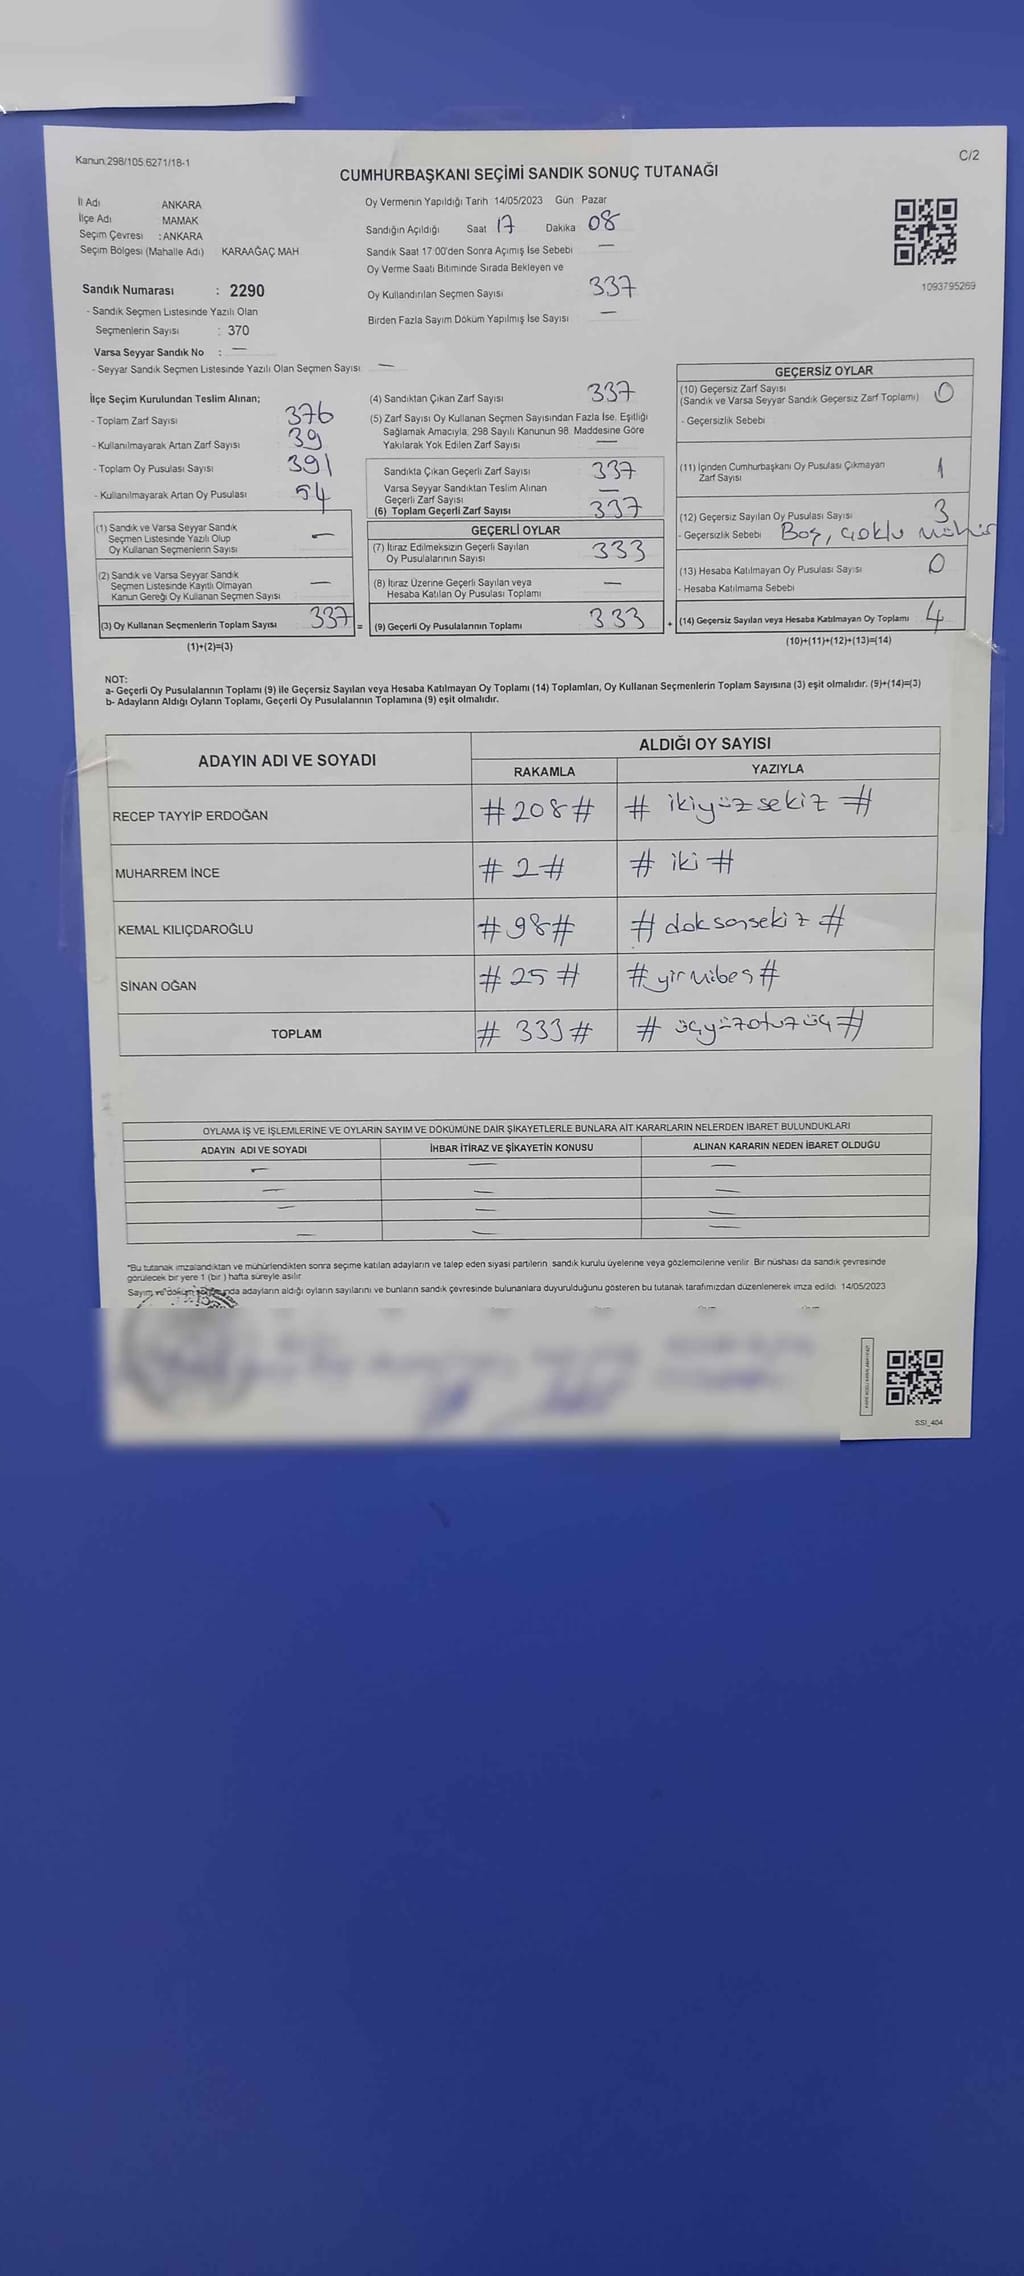 Kanun.298/105.6271/18-1
C/2
CUMHURBAŞKANI SEÇİMİ SANDIK SONUÇ TUTANAĞI
İl Adı ANKARA
İlçe Adı MAMAK
Seçim Çevresi : ANKARA
Seçim Bölgesi (Mahalle Adı) KARAAĞAÇ MAH
Sandık Numarası : 2290
- Sandık Seçmen Listesinde Yazılı Olan
Seçmenlerin Sayısı : 370
Varsa Seyyar Sandık No : —
- Seyyar Sandık Seçmen Listesinde Yazılı Olan Seçmen Sayısı —
Oy Vermenin Yapıldığı Tarih 14/05/2023 Gün Pazar
Sandığın Açıldığı Saat 17 Dakika 08
Sandık Saat 17:00'den Sonra Açımış İse Sebebi —
Oy Verme Saati Bitiminde Sırada Bekleyen ve
Oy Kullandırılan Seçmen Sayısı 337
Birden Fazla Sayım Döküm Yapılmış İse Sayısı —
1093795269
İlçe Seçim Kurulundan Teslim Alınan;
- Toplam Zarf Sayısı 376
- Kullanılmayarak Artan Zarf Sayısı 39
- Toplam Oy Pusulası Sayısı 391
- Kullanılmayarak Artan Oy Pusulası 54
(1) Sandık ve Varsa Seyyar Sandık
Seçmen Listesinde Yazılı Olup
Oy Kullanan Seçmenlerin Sayısı —
(2) Sandık ve Varsa Seyyar Sandık
Seçmen Listesinde Kayıtlı Olmayan
Kanun Gereği Oy Kullanan Seçmen Sayısı —
(3) Oy Kullanan Seçmenlerin Toplam Sayısı 337 =
(1)+(2)=(3)
(4) Sandıktan Çıkan Zarf Sayısı 337
(5) Zarf Sayısı Oy Kullanan Seçmen Sayısından Fazla İse, Eşitliği
Sağlamak Amacıyla, 298 Sayılı Kanunun 98. Maddesine Göre
Yakılarak Yok Edilen Zarf Sayısı —
Sandıkta Çıkan Geçerli Zarf Sayısı 337
Varsa Seyyar Sandıktan Teslim Alınan
Geçerli Zarf Sayısı —
(6) Toplam Geçerli Zarf Sayısı 337
GEÇERLİ OYLAR
(7) İtiraz Edilmeksizin Geçerli Sayılan
Oy Pusulalarının Sayısı 333
(8) İtiraz Üzerine Geçerli Sayılan veya
Hesaba Katılan Oy Pusulası Toplamı —
(9) Geçerli Oy Pusulalarının Toplamı 333 +
GEÇERSİZ OYLAR
(10) Geçersiz Zarf Sayısı
(Sandık ve Varsa Seyyar Sandık Geçersiz Zarf Toplamı) 0
- Geçersizlik Sebebi
(11) İçinden Cumhurbaşkanı Oy Pusulası Çıkmayan
Zarf Sayısı 1
(12) Geçersiz Sayılan Oy Pusulası Sayısı 3
- Geçersizlik Sebebi Boş, çoklu mühür
(13) Hesaba Katılmayan Oy Pusulası Sayısı 0
- Hesaba Katılmama Sebebi
(14) Geçersiz Sayılan veya Hesaba Katılmayan Oy Toplamı 4
(10)+(11)+(12)+(13)=(14)
NOT:
a- Geçerli Oy Pusulalarının Toplamı (9) ile Geçersiz Sayılan veya Hesaba Katılmayan Oy Toplamı (14) Toplamları, Oy Kullanan Seçmenlerin Toplam Sayısına (3) eşit olmalıdır. (9)+(14)=(3)
b- Adayların Aldığı Oyların Toplamı, Geçerli Oy Pusulalarının Toplamına (9) eşit olmalıdır.
ADAYIN ADI VE SOYADI ALDIĞI OY SAYISI
RAKAMLA YAZIYLA
RECEP TAYYİP ERDOĞAN #208# # ikiyüzsekiz #
MUHARREM İNCE # 2 # # iki #
KEMAL KILIÇDAROĞLU #98# # doksansekiz #
SİNAN OĞAN # 25 # # yirmibeş #
TOPLAM # 333 # # üçyüzotuzüç #
OYLAMA İŞ VE İŞLEMLERİNE VE OYLARIN SAYIM VE DÖKÜMÜNE DAİR ŞİKAYETLERLE BUNLARA AİT KARARLARIN NELERDEN İBARET BULUNDUKLARI
ADAYIN ADI VE SOYADI İHBAR İTİRAZ VE ŞİKAYETİN KONUSU ALINAN KARARIN NEDEN İBARET OLDUĞU
— — —
— — —
— — —
— — —
*Bu tutanak imzalandıktan ve mühürlendikten sonra seçime katılan adayların ve talep eden siyasi partilerin sandık kurulu üyelerine veya gözlemcilerine verilir. Bir nüshası da sandık çevresinde
görülecek bir yere 1 (bir ) hafta süreyle asılır
Sayım ve döküm adayların aldığı oyların sayılarını ve bunların sandık çevresinde bulunanlara duyurulduğunu gösteren bu tutanak tarafımızdan düzenlenerek imza edildi. 14/05/2023
SSI_404